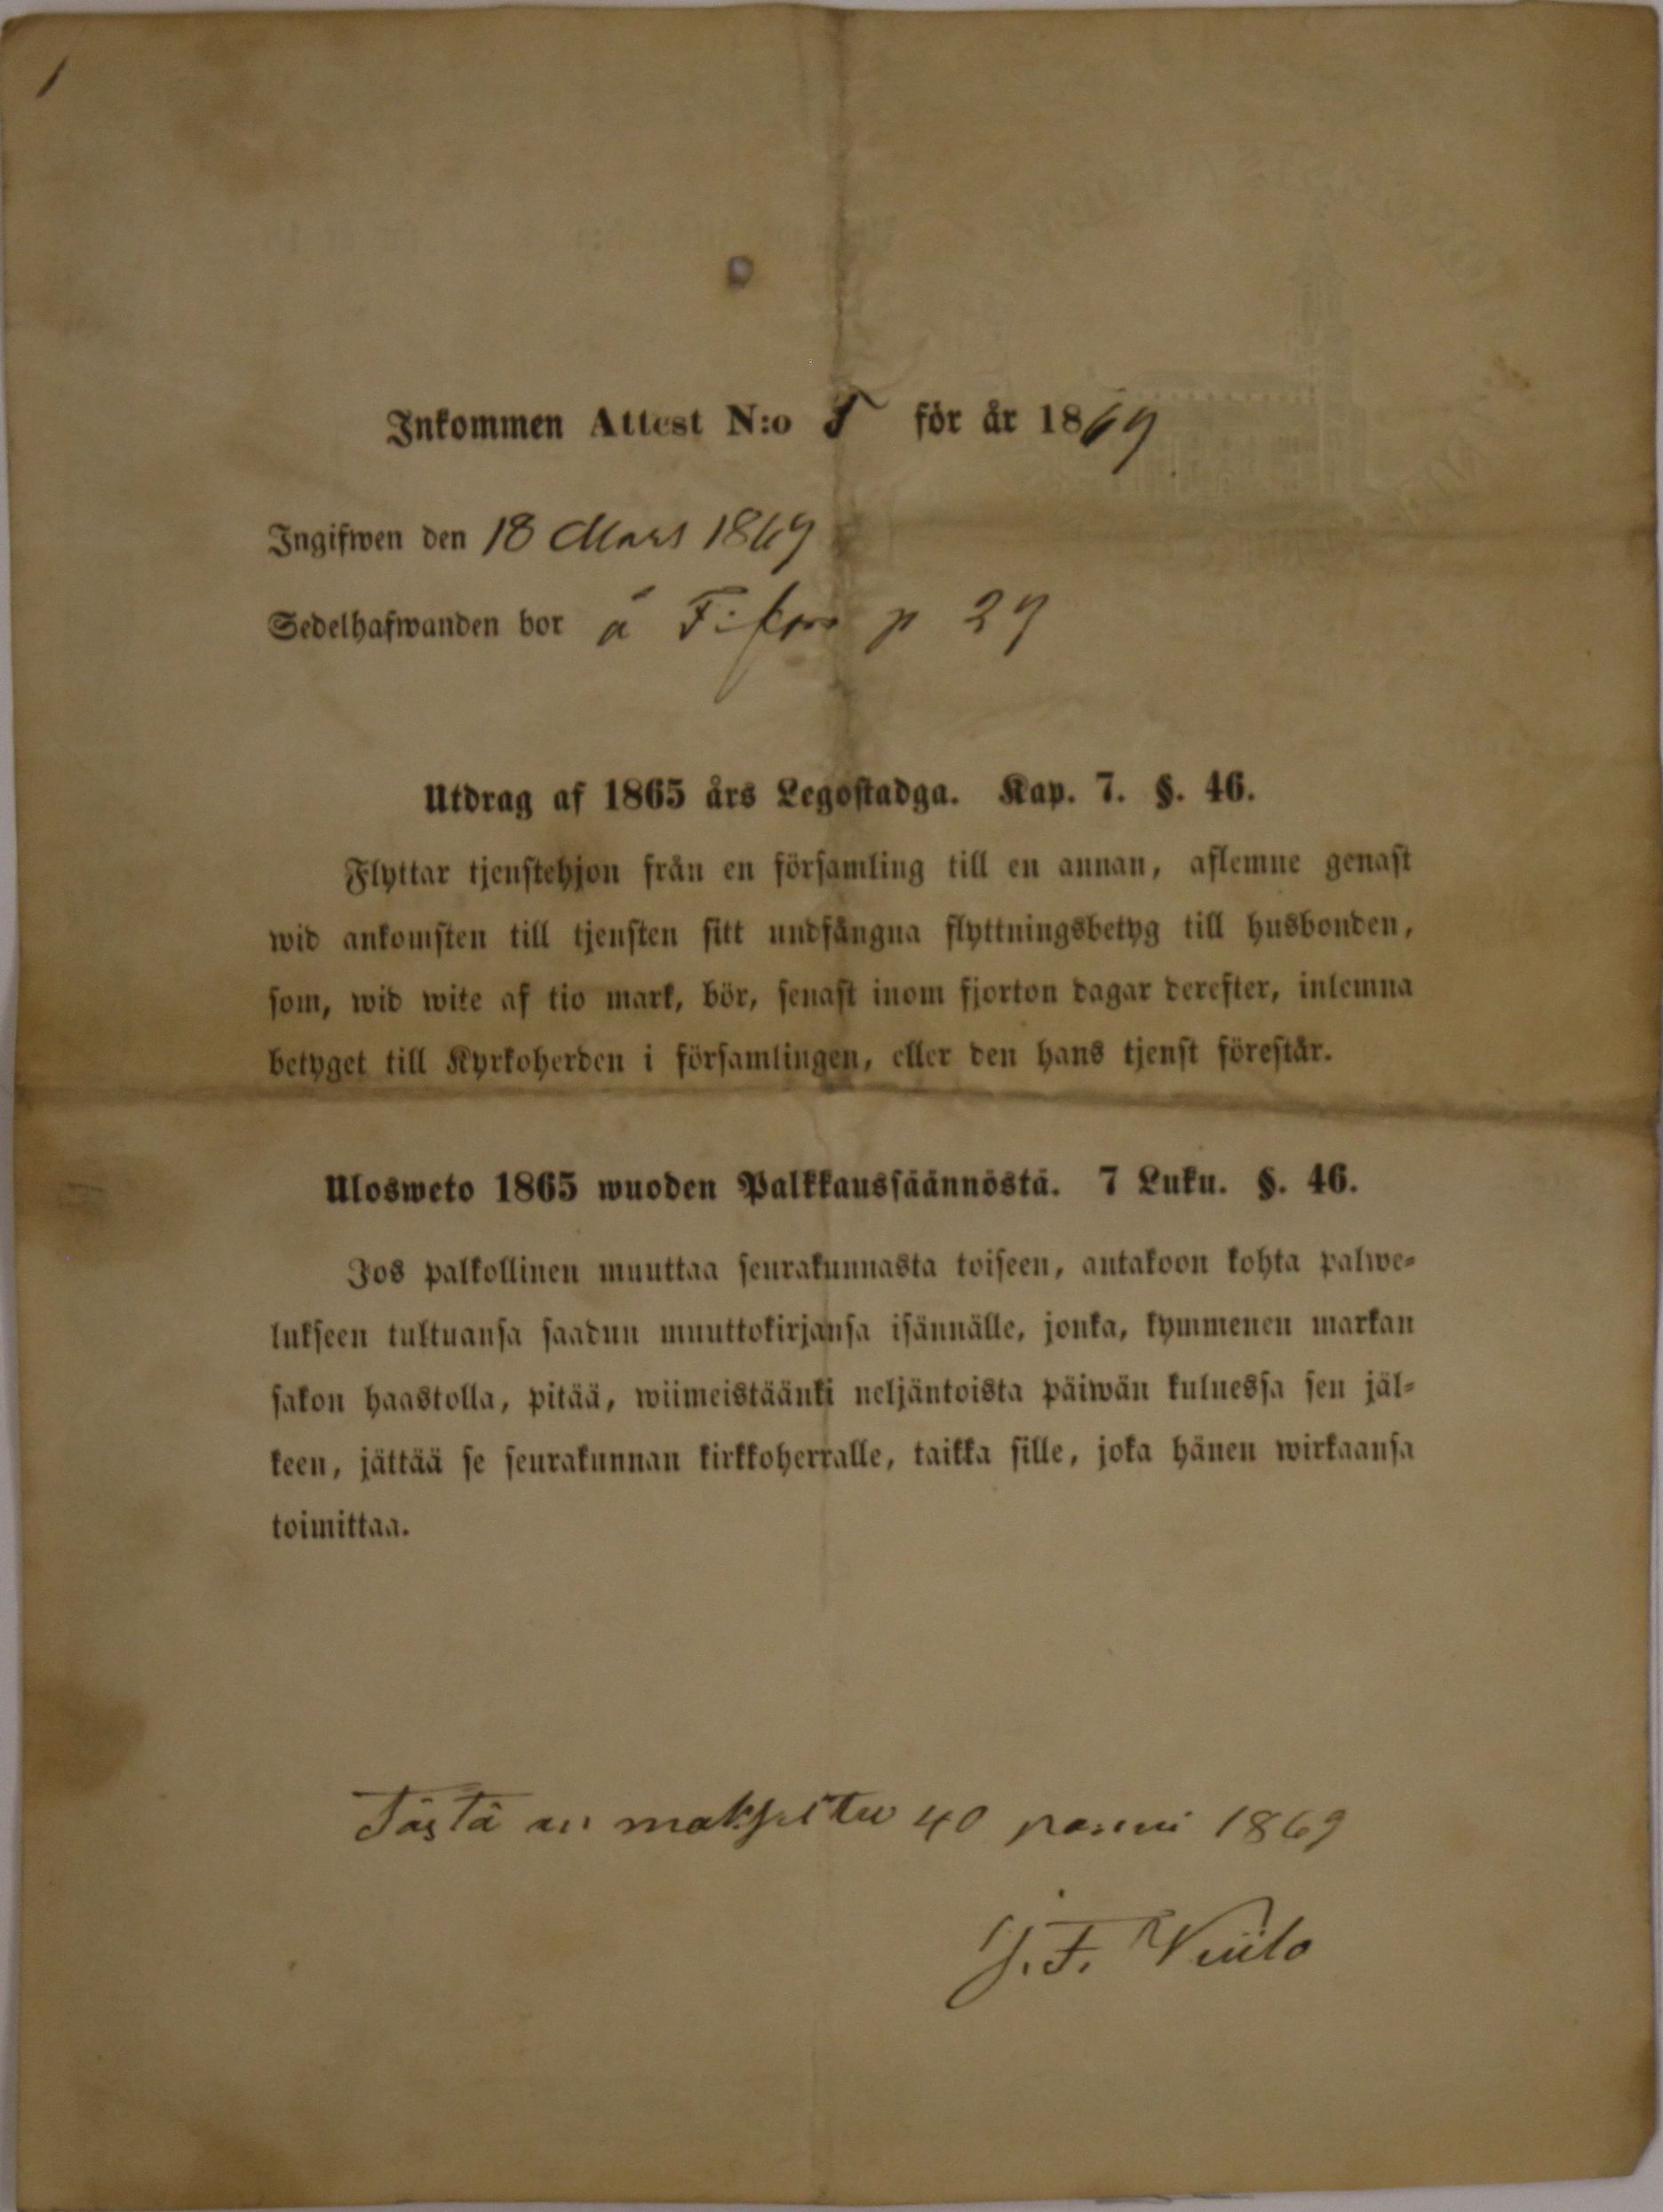 Inkommen Attest N:o 5 för år 1869
Ingifwen den 18 Mars 1869
Sedelhafwanden bor å p 29
Utdrag af 1865 års Legostadga. Kap. 7. §. 46.
Flyttar tjenstehjon från en församling till en annan, aflemne genast
wid ankomsten till tjensten sitt undfångna flyttningsbetyg till husbonden,
som, wid wite af tio mark, bör, senast inom fjorton dagar derefter, inlemna
betyget till Kyrkoherden i församlingen, eller den hans tjenst förestår.
Ulosweto 1865 wuoden Palkkaussäännöstä. 7 Luku. §. 46.
Jos palkollinen muuttaa seurakunnasta toiseen, antakoon kohta palwe-
lukseen tultuansa saadun muuttokirjansa isännälle, jonka, kymmenen markan
sakon haastolla, pitää, wiimeistäänki neljäntoista päiwän kuluessa sen jäl-
keen, jättää se seurakunnan kirkkoherralle, taikka sille, joka hänen wirkaansa
toimittaa.
Tästä on maksettu 40 penni 1869
J. F.